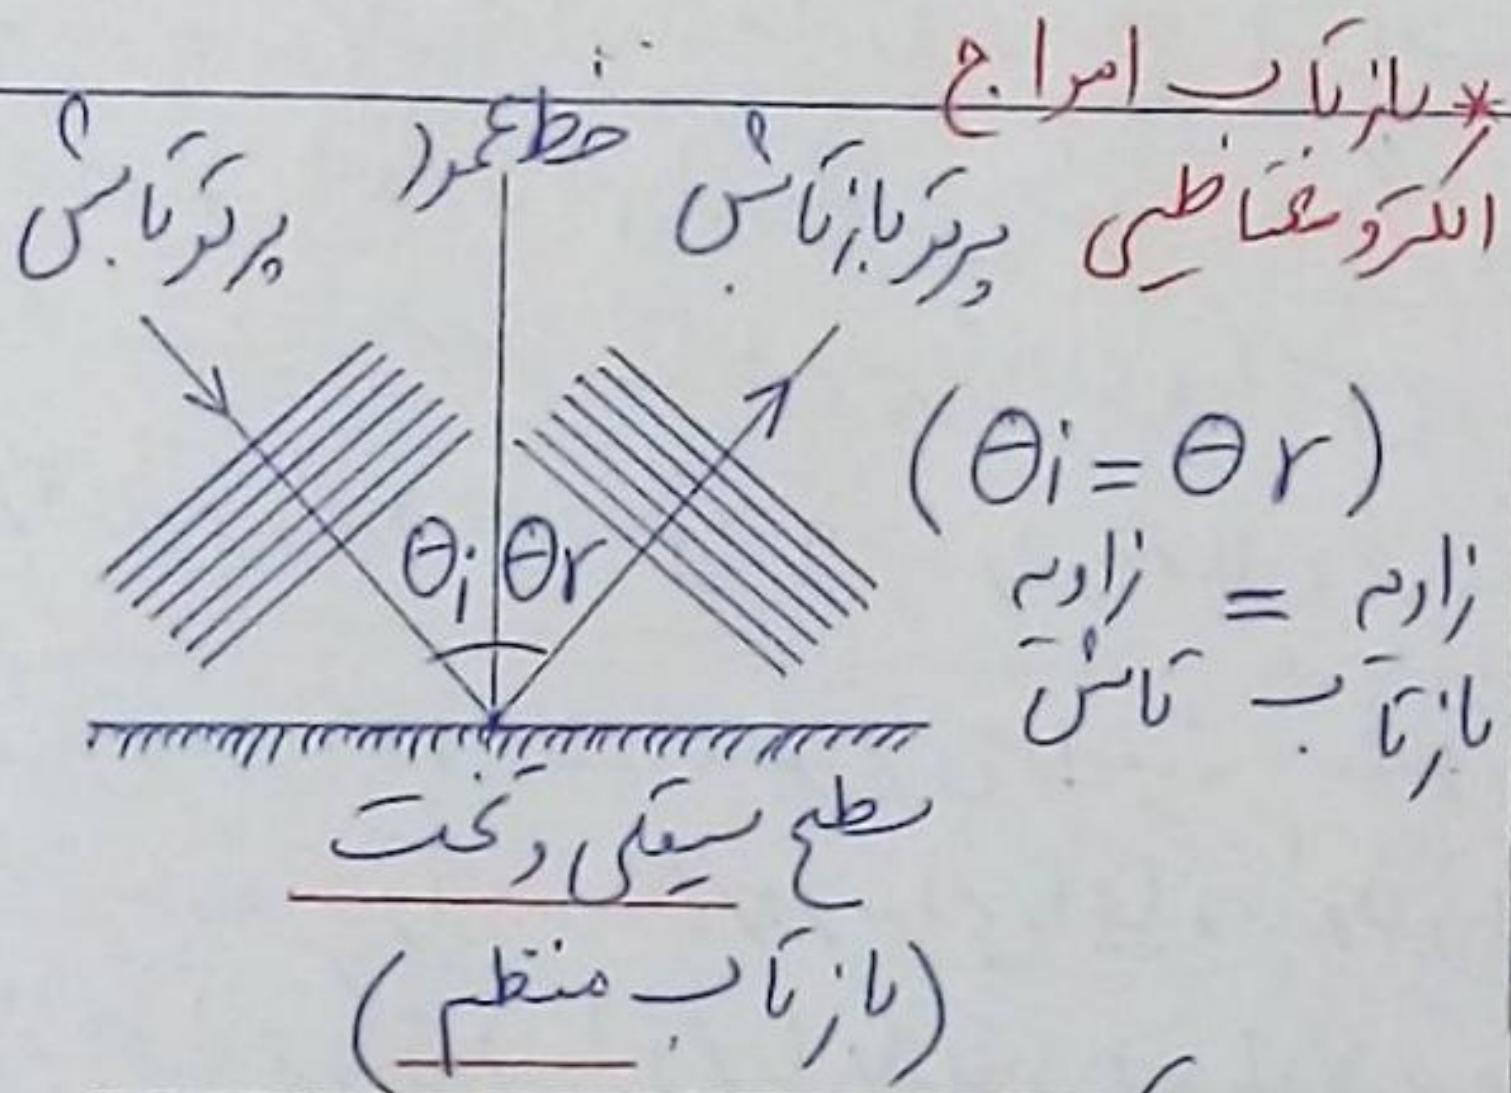 * بازتاب امواج
الکترومغناطیسی
پرتو تابش
خط عمود
پرتو بازتابش
θi θr
(θi = θr)
زاویه = زاویه
بازتاب تابش
سطح سیقلی و تخت
(بازتاب منظم)